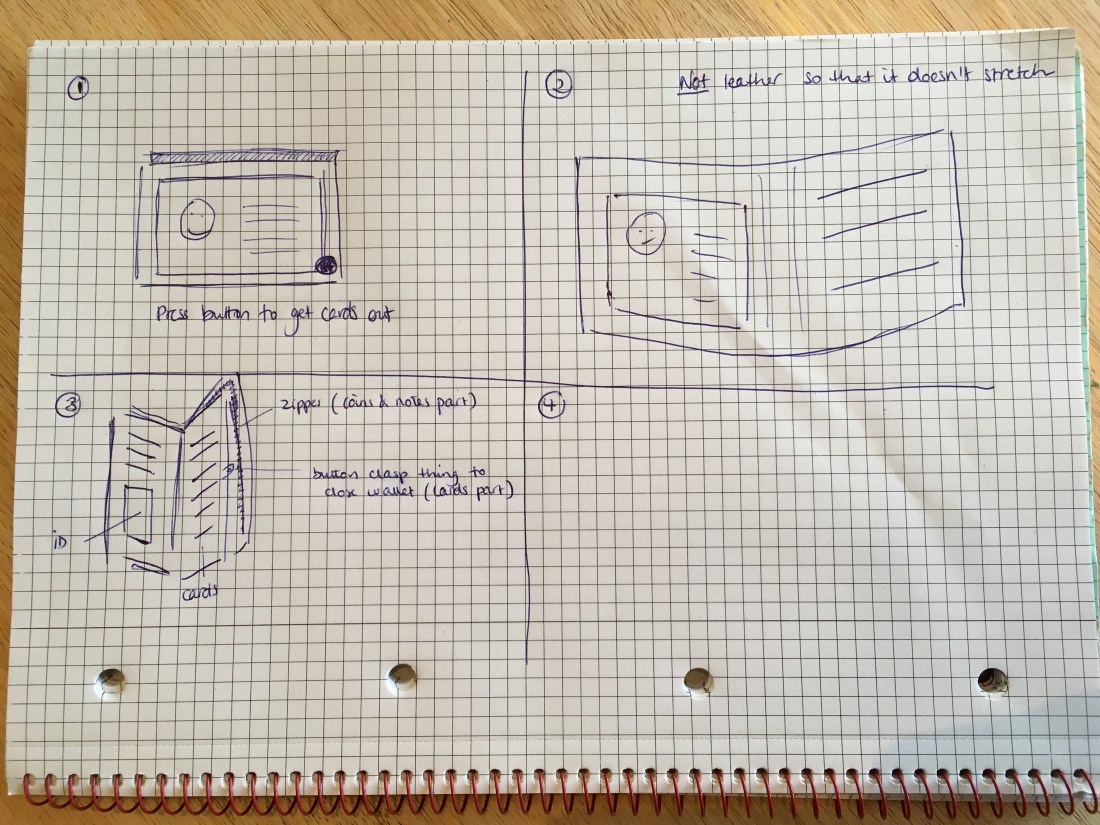 1
Press button to get cards out
2
Not leather so that it doesn't stretch
3
zipper (coins & notes part)
button clasp thing to
close wallet (cards part)
ID
cards
4